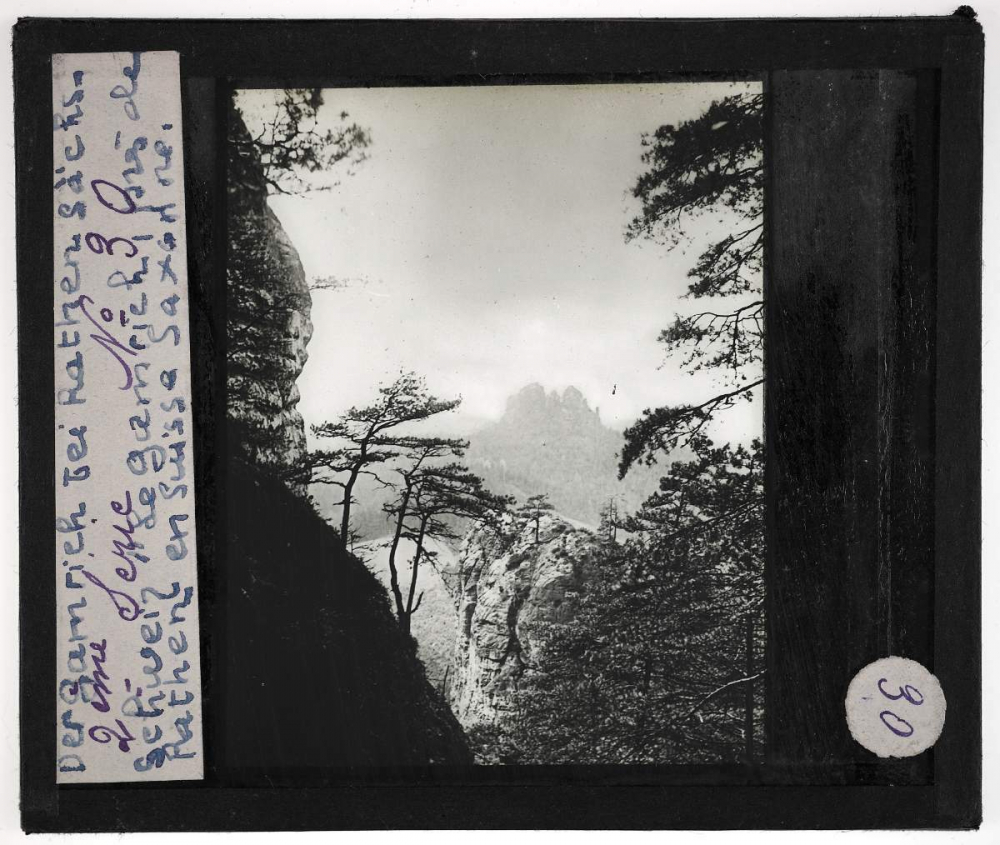 Der gamrich bei Rathen sächs.
2ème Serie No 30
Schweiz Le gamrich près de
Rathen en suisse saxonne.
30